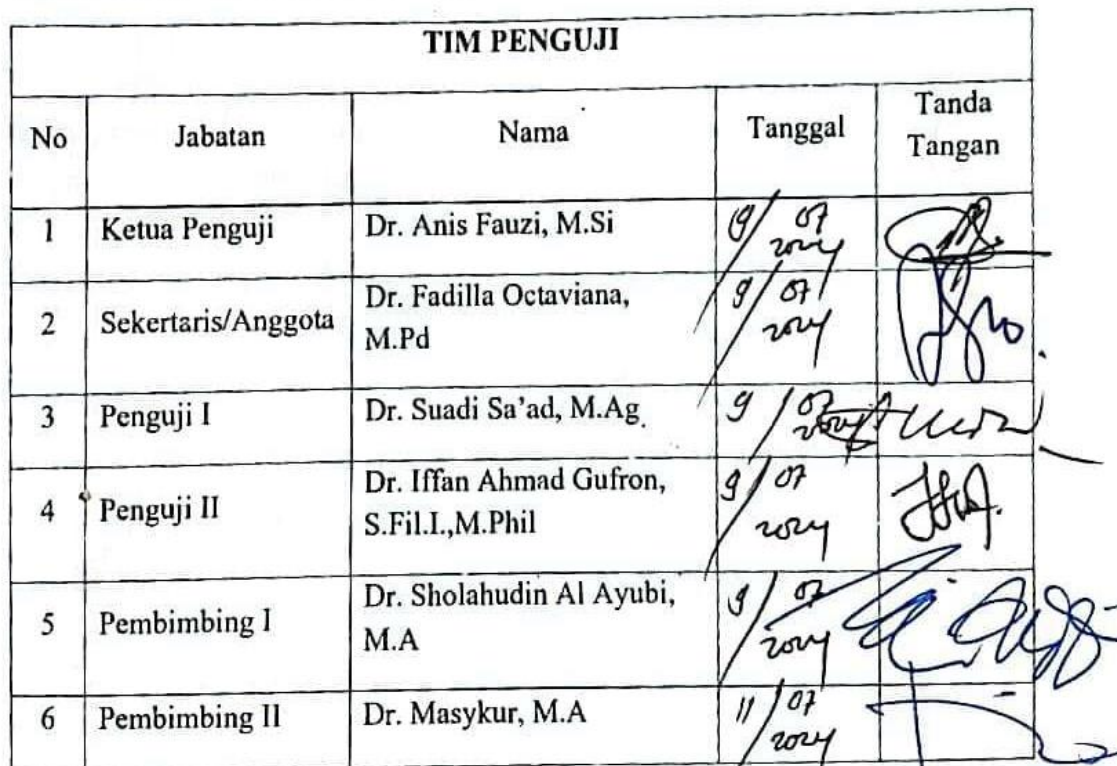 TIM PENGUJI
No Jabatan Nama Tanggal Tanda Tangan
1 Ketua Penguji Dr. Anis Fauzi, M.Si 9/07 2024
2 Sekertaris/Anggota Dr. Fadilla Octaviana, M.Pd 9/07 2024
3 Penguji I Dr. Suadi Sa'ad, M.Ag 9/07 2024
4 Penguji II Dr. Iffan Ahmad Gufron, S.Fil.I.,M.Phil 9/07 2024
5 Pembimbing I Dr. Sholahudin Al Ayubi, M.A 9/07 2024
6 Pembimbing II Dr. Masykur, M.A 11/07 2024